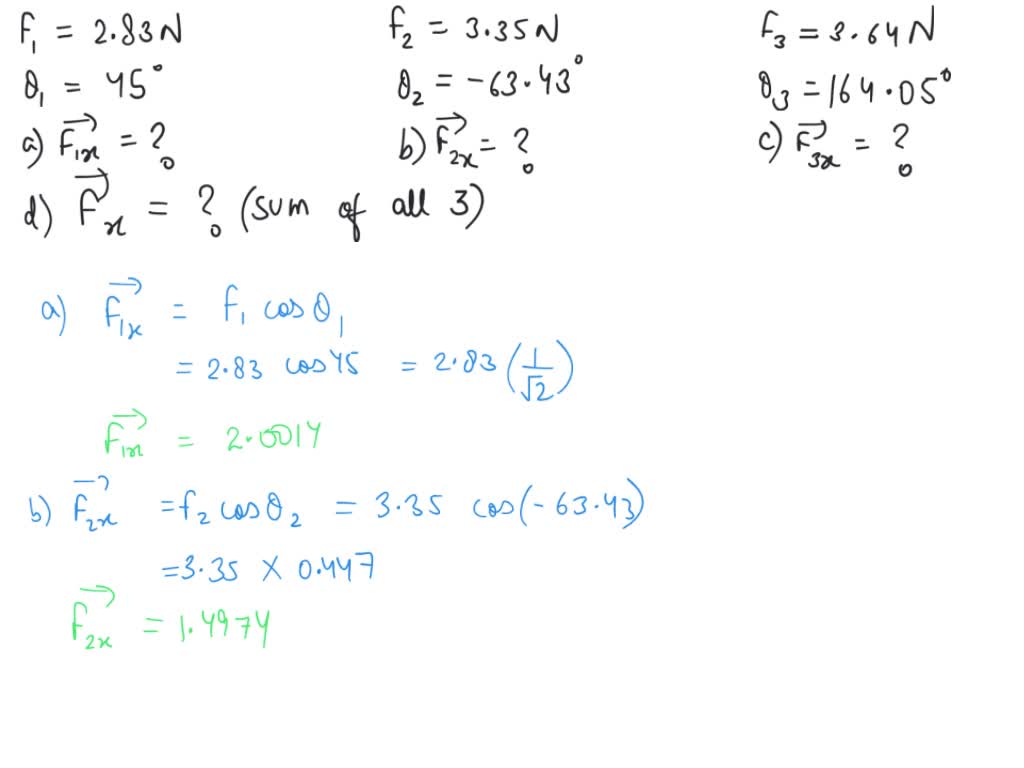 F₁ = 2.83N f₂ = 3.35N F₃ = 3.64N
θ₁ = 45° θ₂ = -63.43° θ₃ = 164.05°
a) F⃗₁ₓ = ? b) F⃗₂ₓ = ? c) F⃗₃ₓ = ?
d) F⃗ₓ = ? (sum of all 3)
a) F⃗₁ₓ = F₁ cos θ₁
= 2.83 cos45 = 2.83 (1/√2)
F⃗₁ₓ = 2.0014
b) F⃗₂ₓ = f₂ cos θ₂ = 3.35 cos(-63.43)
= 3.35 × 0.447
F⃗₂ₓ = 1.4974